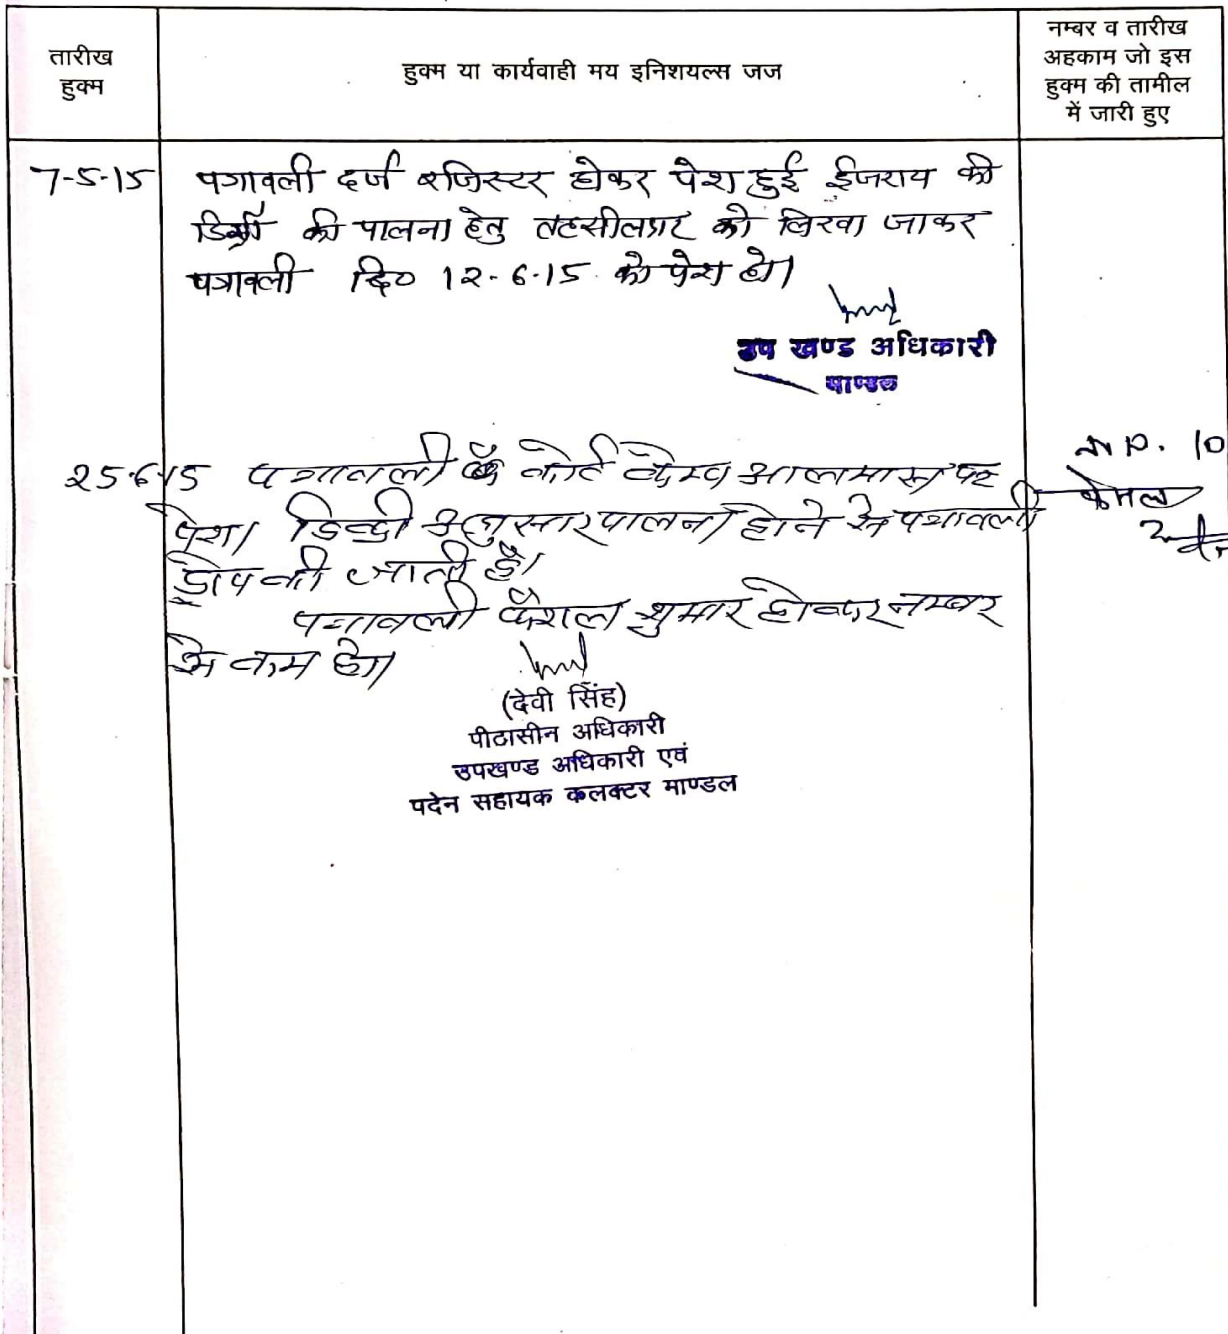 तारीख
हुक्म
हुक्म या कार्यवाही मय इनिशयल्स जज
नम्बर व तारीख
अहकाम जो इस
हुक्म की तामील
में जारी हुए
7-5-15 पत्रावली दर्ज रजिस्टर होकर पेश हुई ईजराय की
डिक्री की पालना हेतु तहसीलदार को लिखा जाकर
पत्रावली दि० 12-6-15 को पेश हो।
उप खण्ड अधिकारी
माण्डल
25-6-15 पत्रावली कोर्ट केम्प आलमास पर
पेश। डिक्री अनुसार पालना होने से पत्रावली
ड्रोप की जाती है।
पत्रावली फैशल शुमार होकर नम्बर
से कम हो।
10
(देवी सिंह)
पीठासीन अधिकारी
उपखण्ड अधिकारी एवं
पदेन सहायक कलक्टर माण्डल